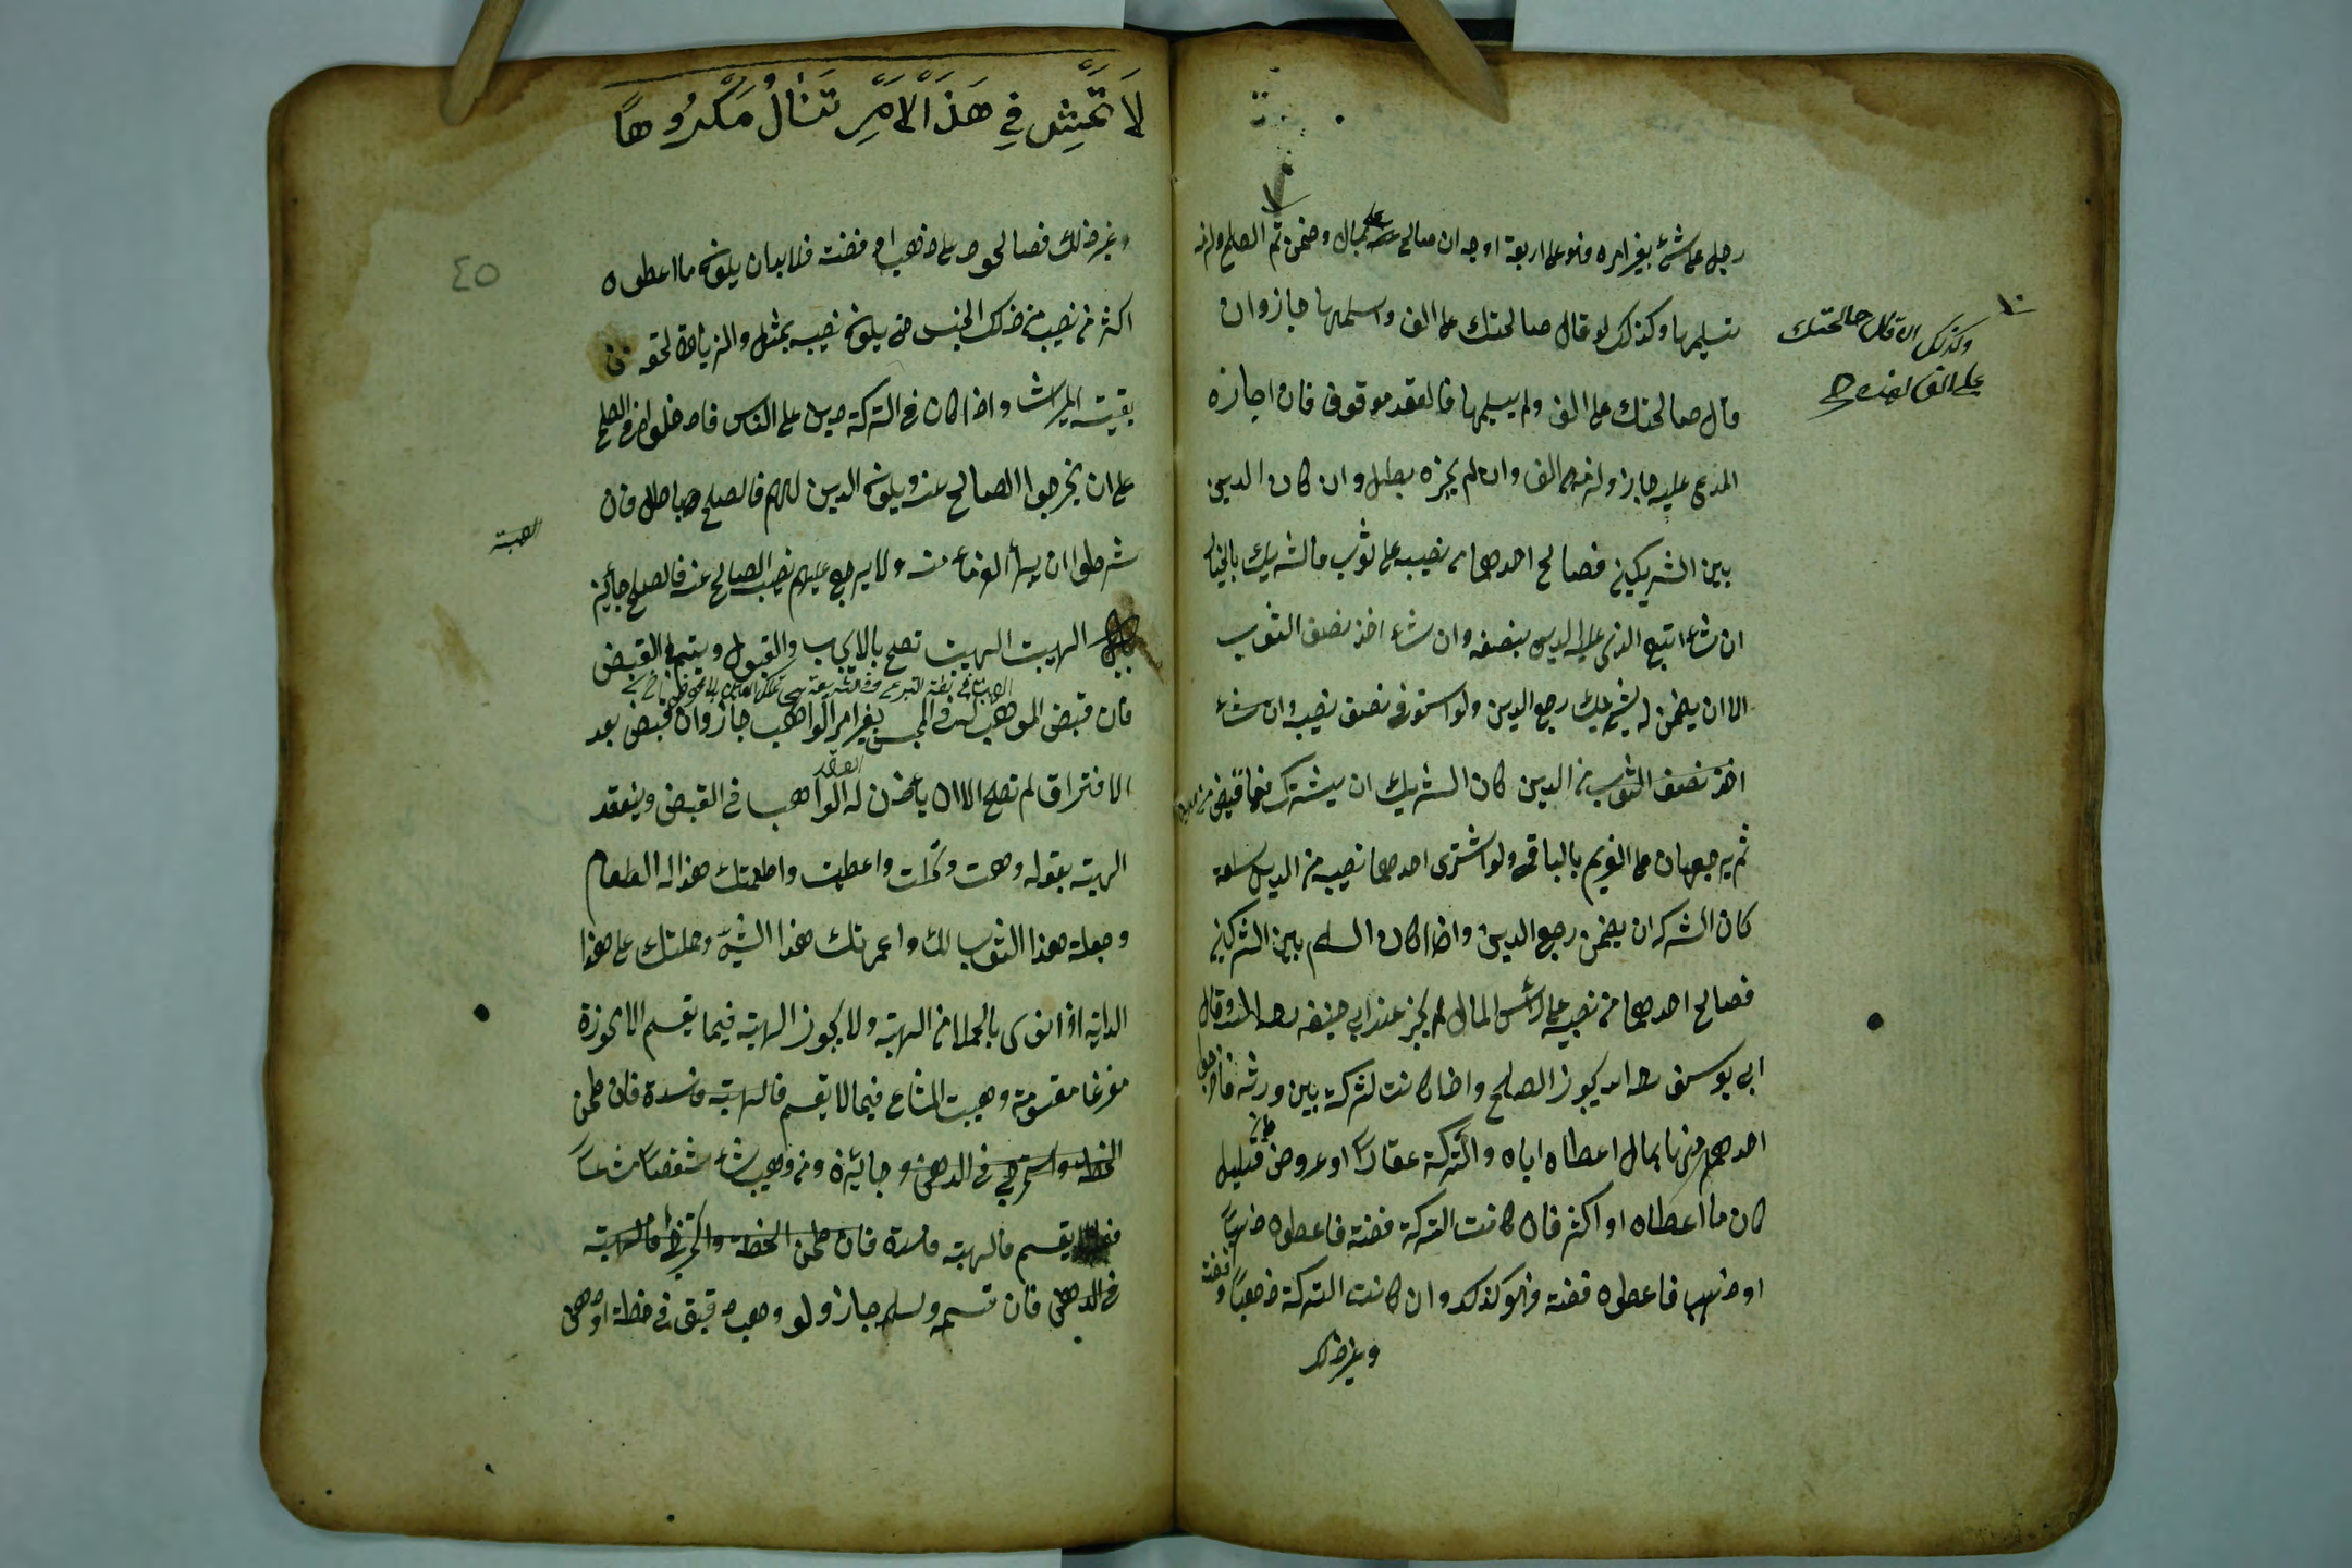 رجل على شئ بغير امره فهو على اربعة اوجه ان صالح على بمال وضمن تم الصلح ولزمه
تسليمها وكذلك لو قال صالحتك على الف واسلمها جاز وان
قال صالحتك على الف ولم يسلمها فالعقد موقوف فان اجازه
المدعى عليه جاز ولزمه الف وان لم يجزه بطل وان كان الدين
بين الشريكين فصالح احدهما من نصيبه على ثوب فالشريك بالخيار
ان شاء اتبع الذى عليه الدين بنصفه وان شاء اخذ نصف الثوب
الا ان يضمن له شريك ربع الدين ولو استوفى نصف نصيبه وان شاء
اخذ نصف الثوب من الدين كان الشريك ان يشترك فيما قبض من الدين
ثم يرجعان على الغريم بالباقى ولو اشترى احدهما نصيبه من الدين سلعة
كان الشركه ان يضمن ربع الدين واذا كان السلم بين الشركين
فصالح احدهما من نصيبه على رأس المال لم يجز عند ابى حنيفه رحمه الله وقال
ابى يوسف رحمه الله يجوز الصلح واذا كانت لتركة بين ورثه فاخرجوا
احدهم منها بمال اعطاه اياه والتركة عقارا او عروض جاز قليل
كان ما اعطاه او اكثر فان كانت التركة فضة فاعطوه ذهباً
او ذهب فاعطوه فضة فهو كذلك وان كانت التركة ذهباً وفضة
وغير ذلك
وكذلك ان قال صالحتك
على الف هذه
لَا تَمْشِ فِي هَذَا الْاَمْرِ تَنَالُ مَكْرُوهاً
٤٥
وغير ذلك فصالحوه على ذهب او فضة فلا بد ان يكون ما اعطوه
اكثر من نصيبه من ذلك الجنس حتى يكون نصيبه بمثله والزيادة لحقه من
بقيت الميراث واذا كان فى التركة دين على الناس فادخلوه فى الصلح
على ان يخرجوا الصالح عنه ويكون الدين لهم فالصلح باطل فان
شرطوا ان يبرأ الغرماء منه ولا يرجع عليهم نصيب الصالح عنه فالصلح جائز
الهبة
الهبت الهبت تصح بالايجاب والقبول ويتم فى القبض
فان قبض الموهب له فى المجلس بغير امر الواهب جاز وان قبض بعد
الافتراق لم تصح الا ان يأذن له الواهب فى القبض وينعقد
العقد
الهبة بقوله وهبت ونحلت واعطيت واطعمتك هذا له الطعام
وجعلة هذا الثوب لك واعمرتك هذا الشئ وحملتك على هذا
الدابة اذا نوى بالحملان الهبة ولا يجوز الهبة فيما يقسم الا محوزة
مفرغا مقسومة وهبت المشاع فيما لا يقسم فالهبة فاسدة فان طحن
فى الدهن وجائزة ومن وهب شئا شقصا مشاعاً
يقسم فالهبة فاسدة فان طحن الحنطة فالهبة
فى الدهن فان قسمه وسلم جاز ولو وهب دقيق فى حنطة او دهن